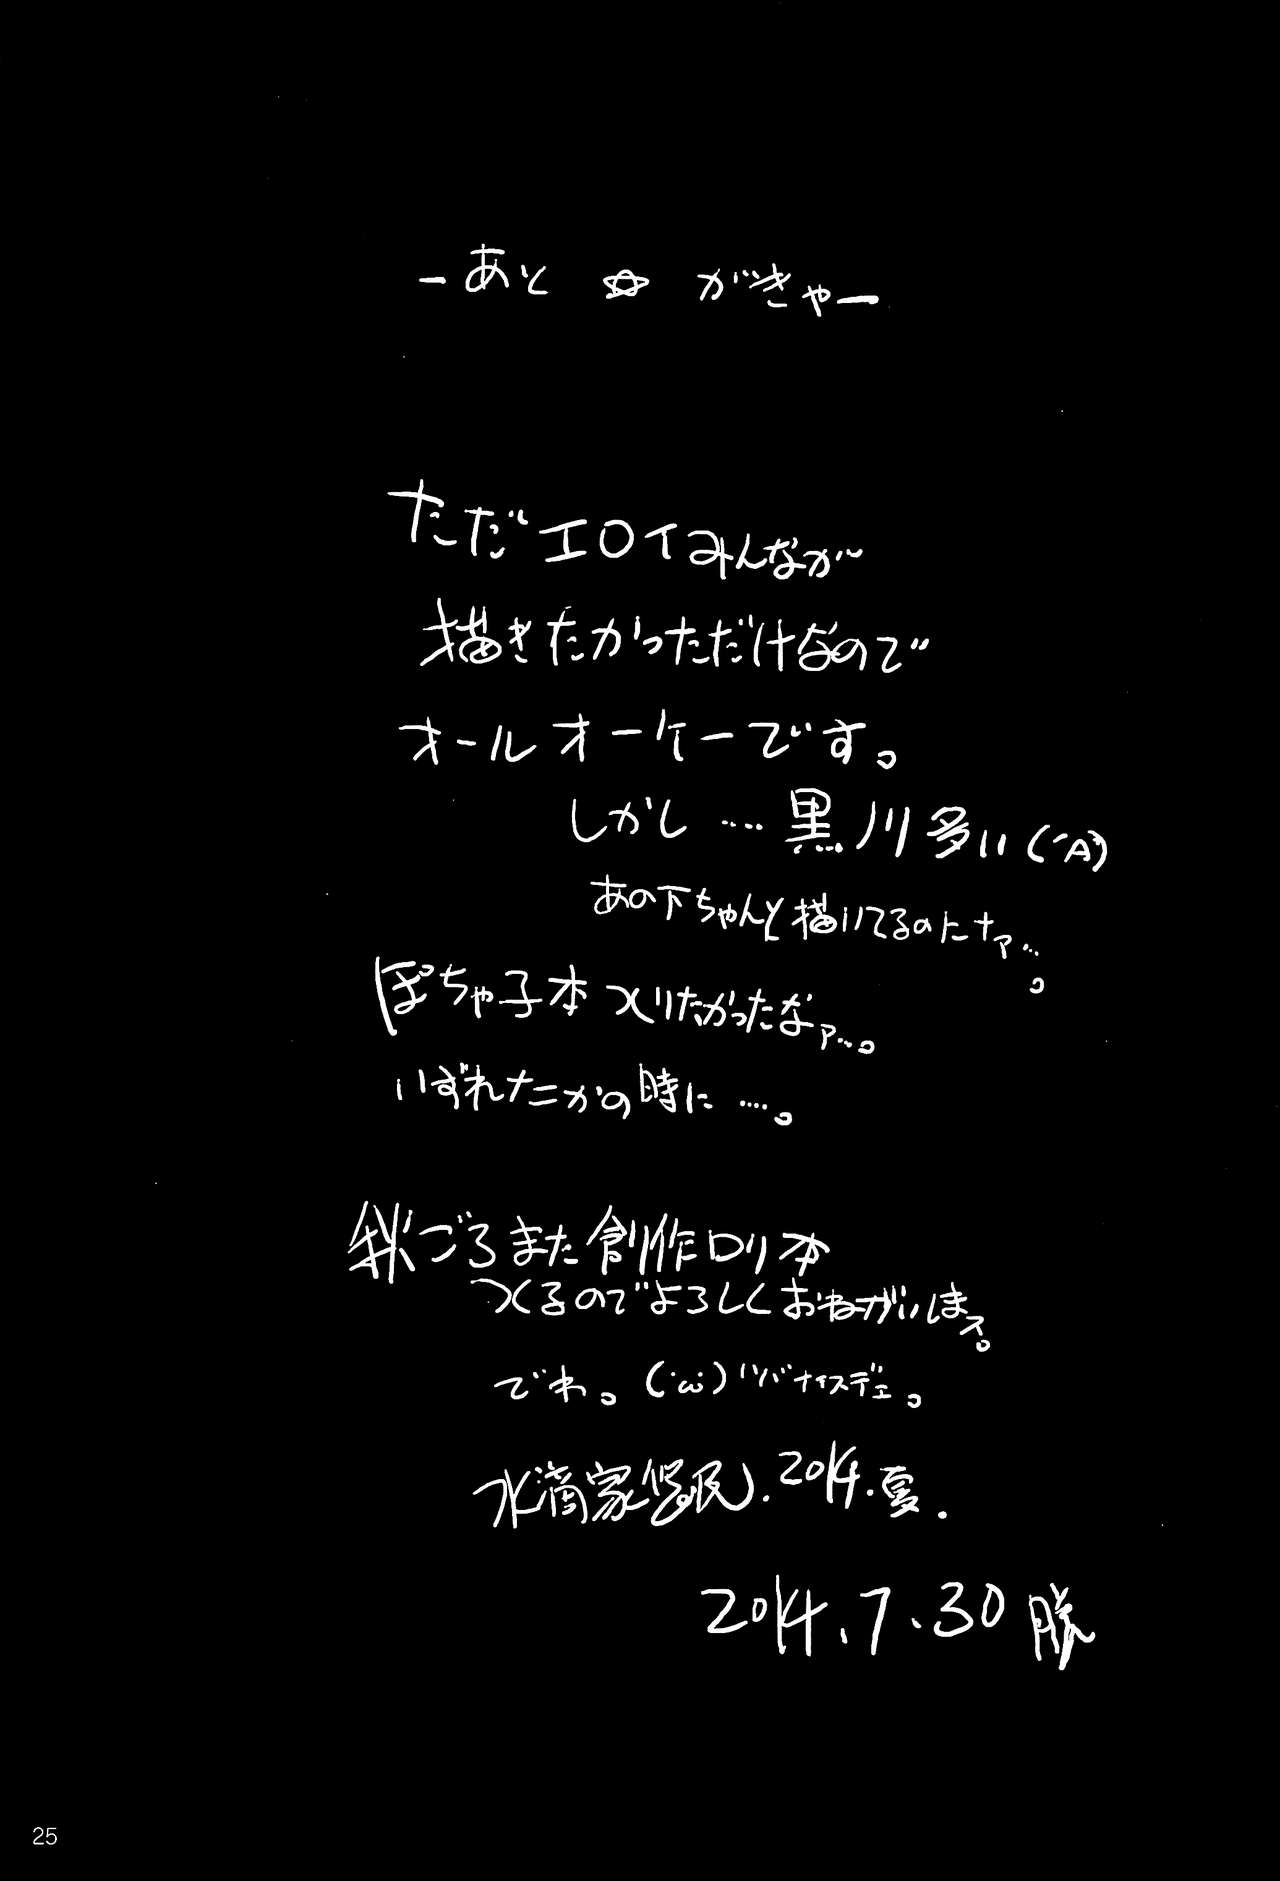 -あと ☆ がきゃー
ただエロイみんなが
描きたかっただけなので
オールオーケーです。
しかし……黒川多い(´A`)
あの下ちゃんと描いてるのにナァ…。
ぽちゃ子本つくりたかったなァ…。
いずれナニかの時に……。
秋ごろまた創作ロリ本
つくるのでよろしくおねがいしまス。
でわ。(´ω`)ツバナイスデェ。
水滴家 2014.夏.
2014.7.30 勝
25